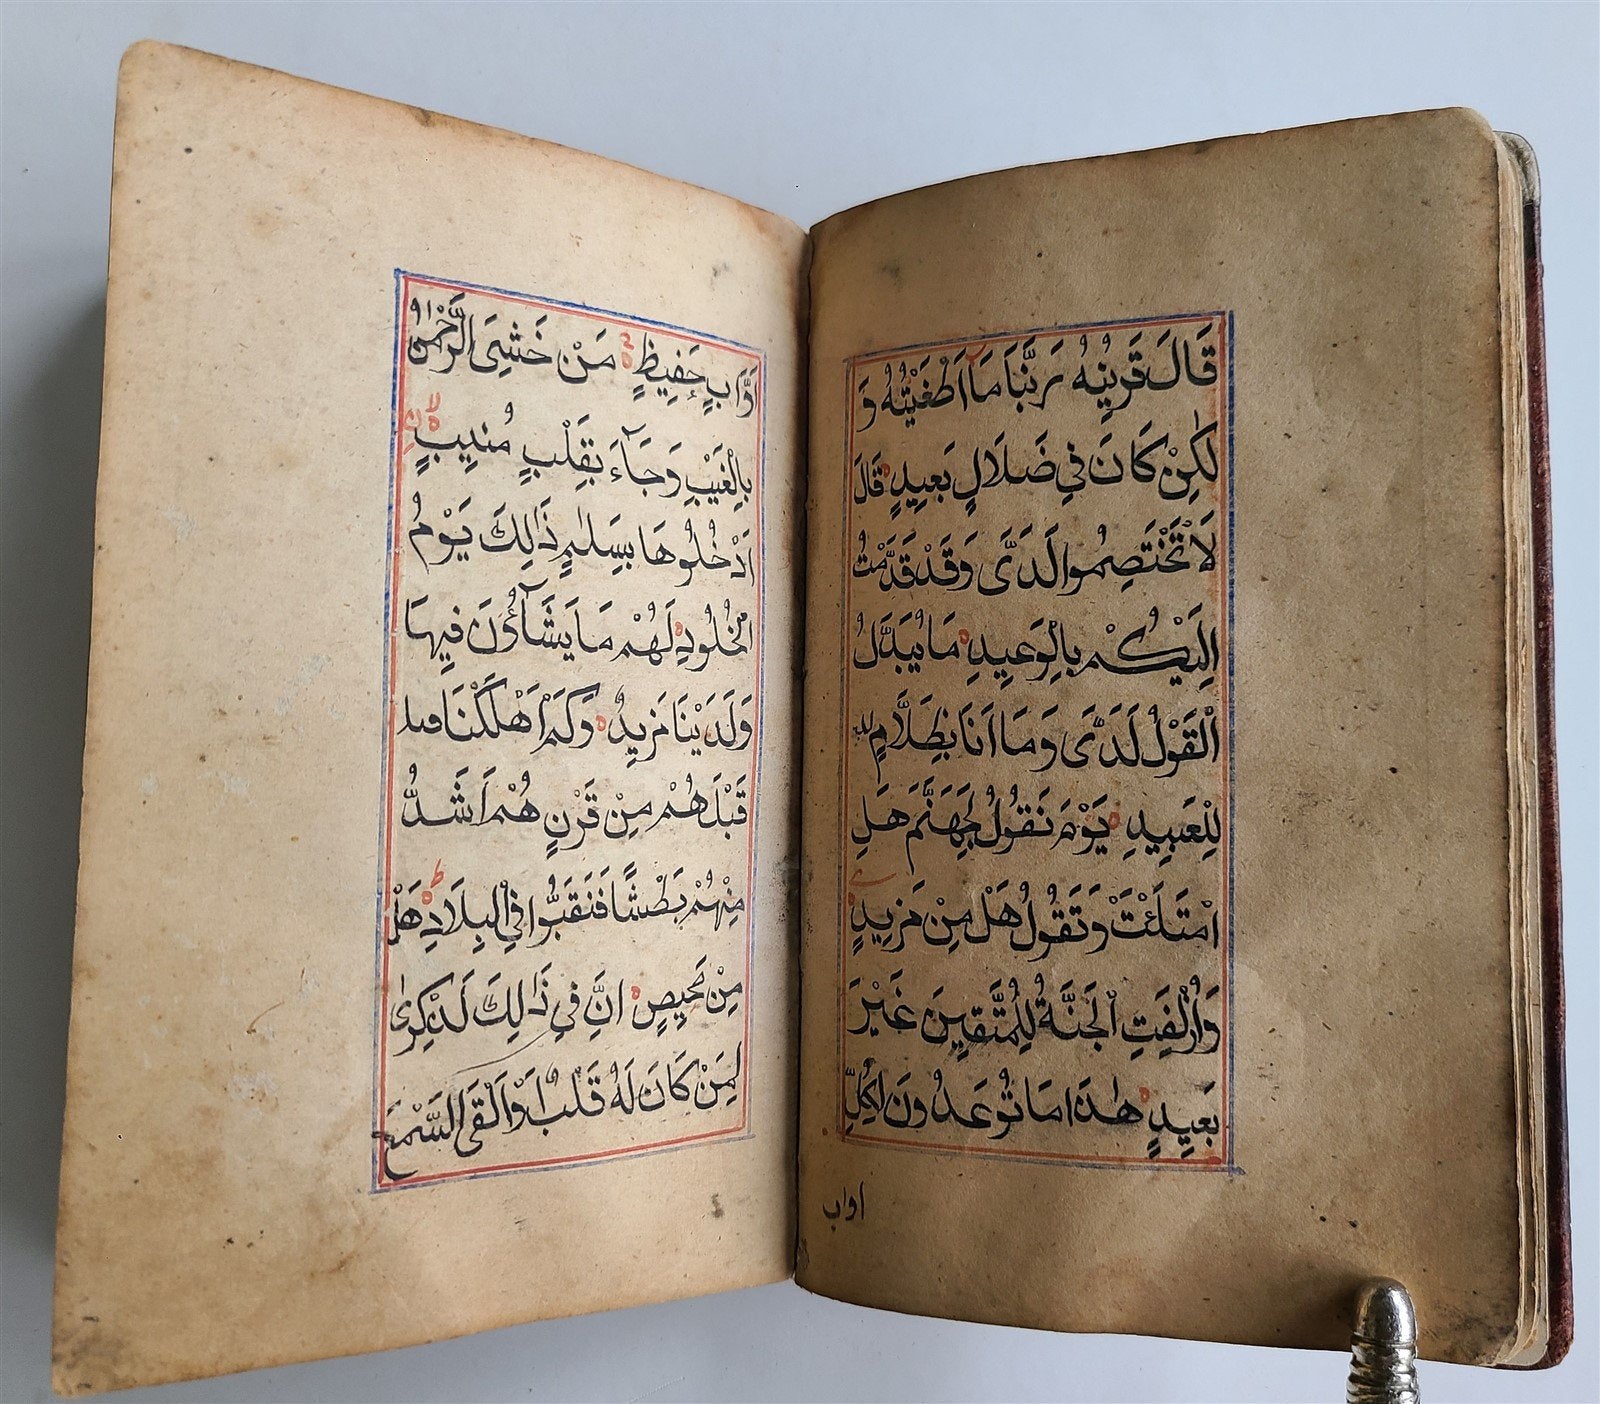 قَالَ قَرِينُهُ رَبَّنَا مَآ اَطْغَيْتُهُ وَ
لٰكِنْ كَانَ فِي ضَلَالٍ بَعِيدٍ قَالَ
لَا تَخْتَصِمُوا لَدَىَّ وَقَدْ قَدَّمْتُ
اِلَيْكُمْ بِالْوَعِيدِ مَا يُبَدَّلُ
الْقَوْلُ لَدَىَّ وَمَا اَنَا بِظَلَّامٍ
لِلْعَبِيدِ يَوْمَ نَقُولُ لِجَهَنَّمَ هَلِ
امْتَلَئْتِ وَتَقُولُ هَلْ مِنْ مَزِيدٍ
وَاُزْلِفَتِ الْجَنَّةُ لِلْمُتَّقِينَ غَيْرَ
بَعِيدٍ هٰذَا مَا تُوعَدُونَ لِكُلِّ
اواب
اَوَّابٍ حَفِيظٍ مَنْ خَشِىَ الرَّحْمٰنَ
بِالْغَيْبِ وَجَآءَ بِقَلْبٍ مُنِيبٍ
اُدْخُلُوهَا بِسَلٰمٍ ذَالِكَ يَوْمُ
الْخُلُودِ لَهُمْ مَا يَشَآؤُنَ فِيهَا
وَلَدَيْنَا مَزِيدٌ وَكَمْ اَهْلَكْنَا
قَبْلَهُمْ مِنْ قَرْنٍ هُمْ اَشَدُّ
مِنْهُمْ بَطْشًا فَنَقَّبُوا فِي الْبِلَادِ هَلْ
مِنْ مَحِيصٍ اِنَّ فِي ذَالِكَ لَذِكْرٰى
لِمَنْ كَانَ لَهُ قَلْبٌ اَوْ اَلْقَى السَّمْعَ